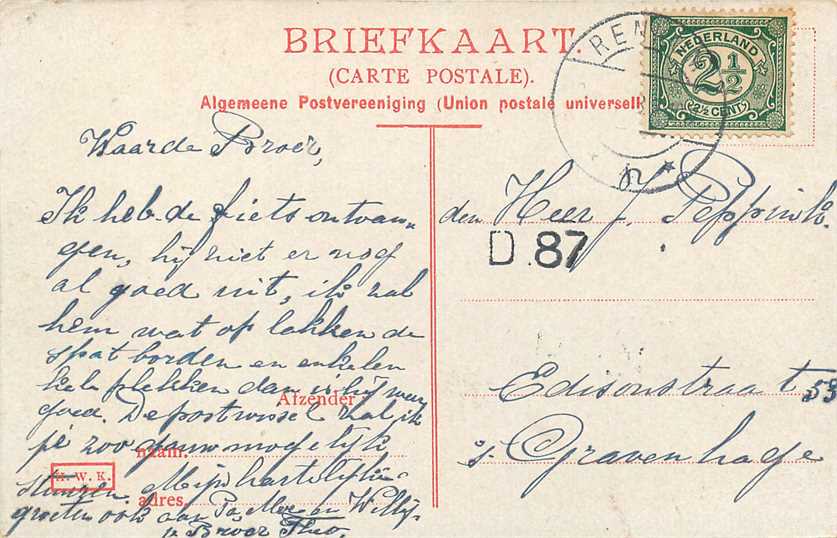 BRIEFKAART.
(CARTE POSTALE).
Algemeene Postvereeniging (Union postale universell
NEDERLAND
2 1/2
2½ CENT
REN
Waarde Broer,
Ik heb de fiets ontvan-
gen, hij ziet er nog
al goed uit, ik zal
hem wat op lakken de
spatborden en enkelen
kale plekken dan is hij weer
goed. De postwissel zal ik
je zoo gauw mogelijk
stuuren. Mijn hartelijke
groeten ook aan Pa, Moe en Willy
Broer Theo.
Afzender
naam.
adres.
W. K.
den Heer J. Peppink.
D. 87
Edisonstraat 53
's Gravenhage